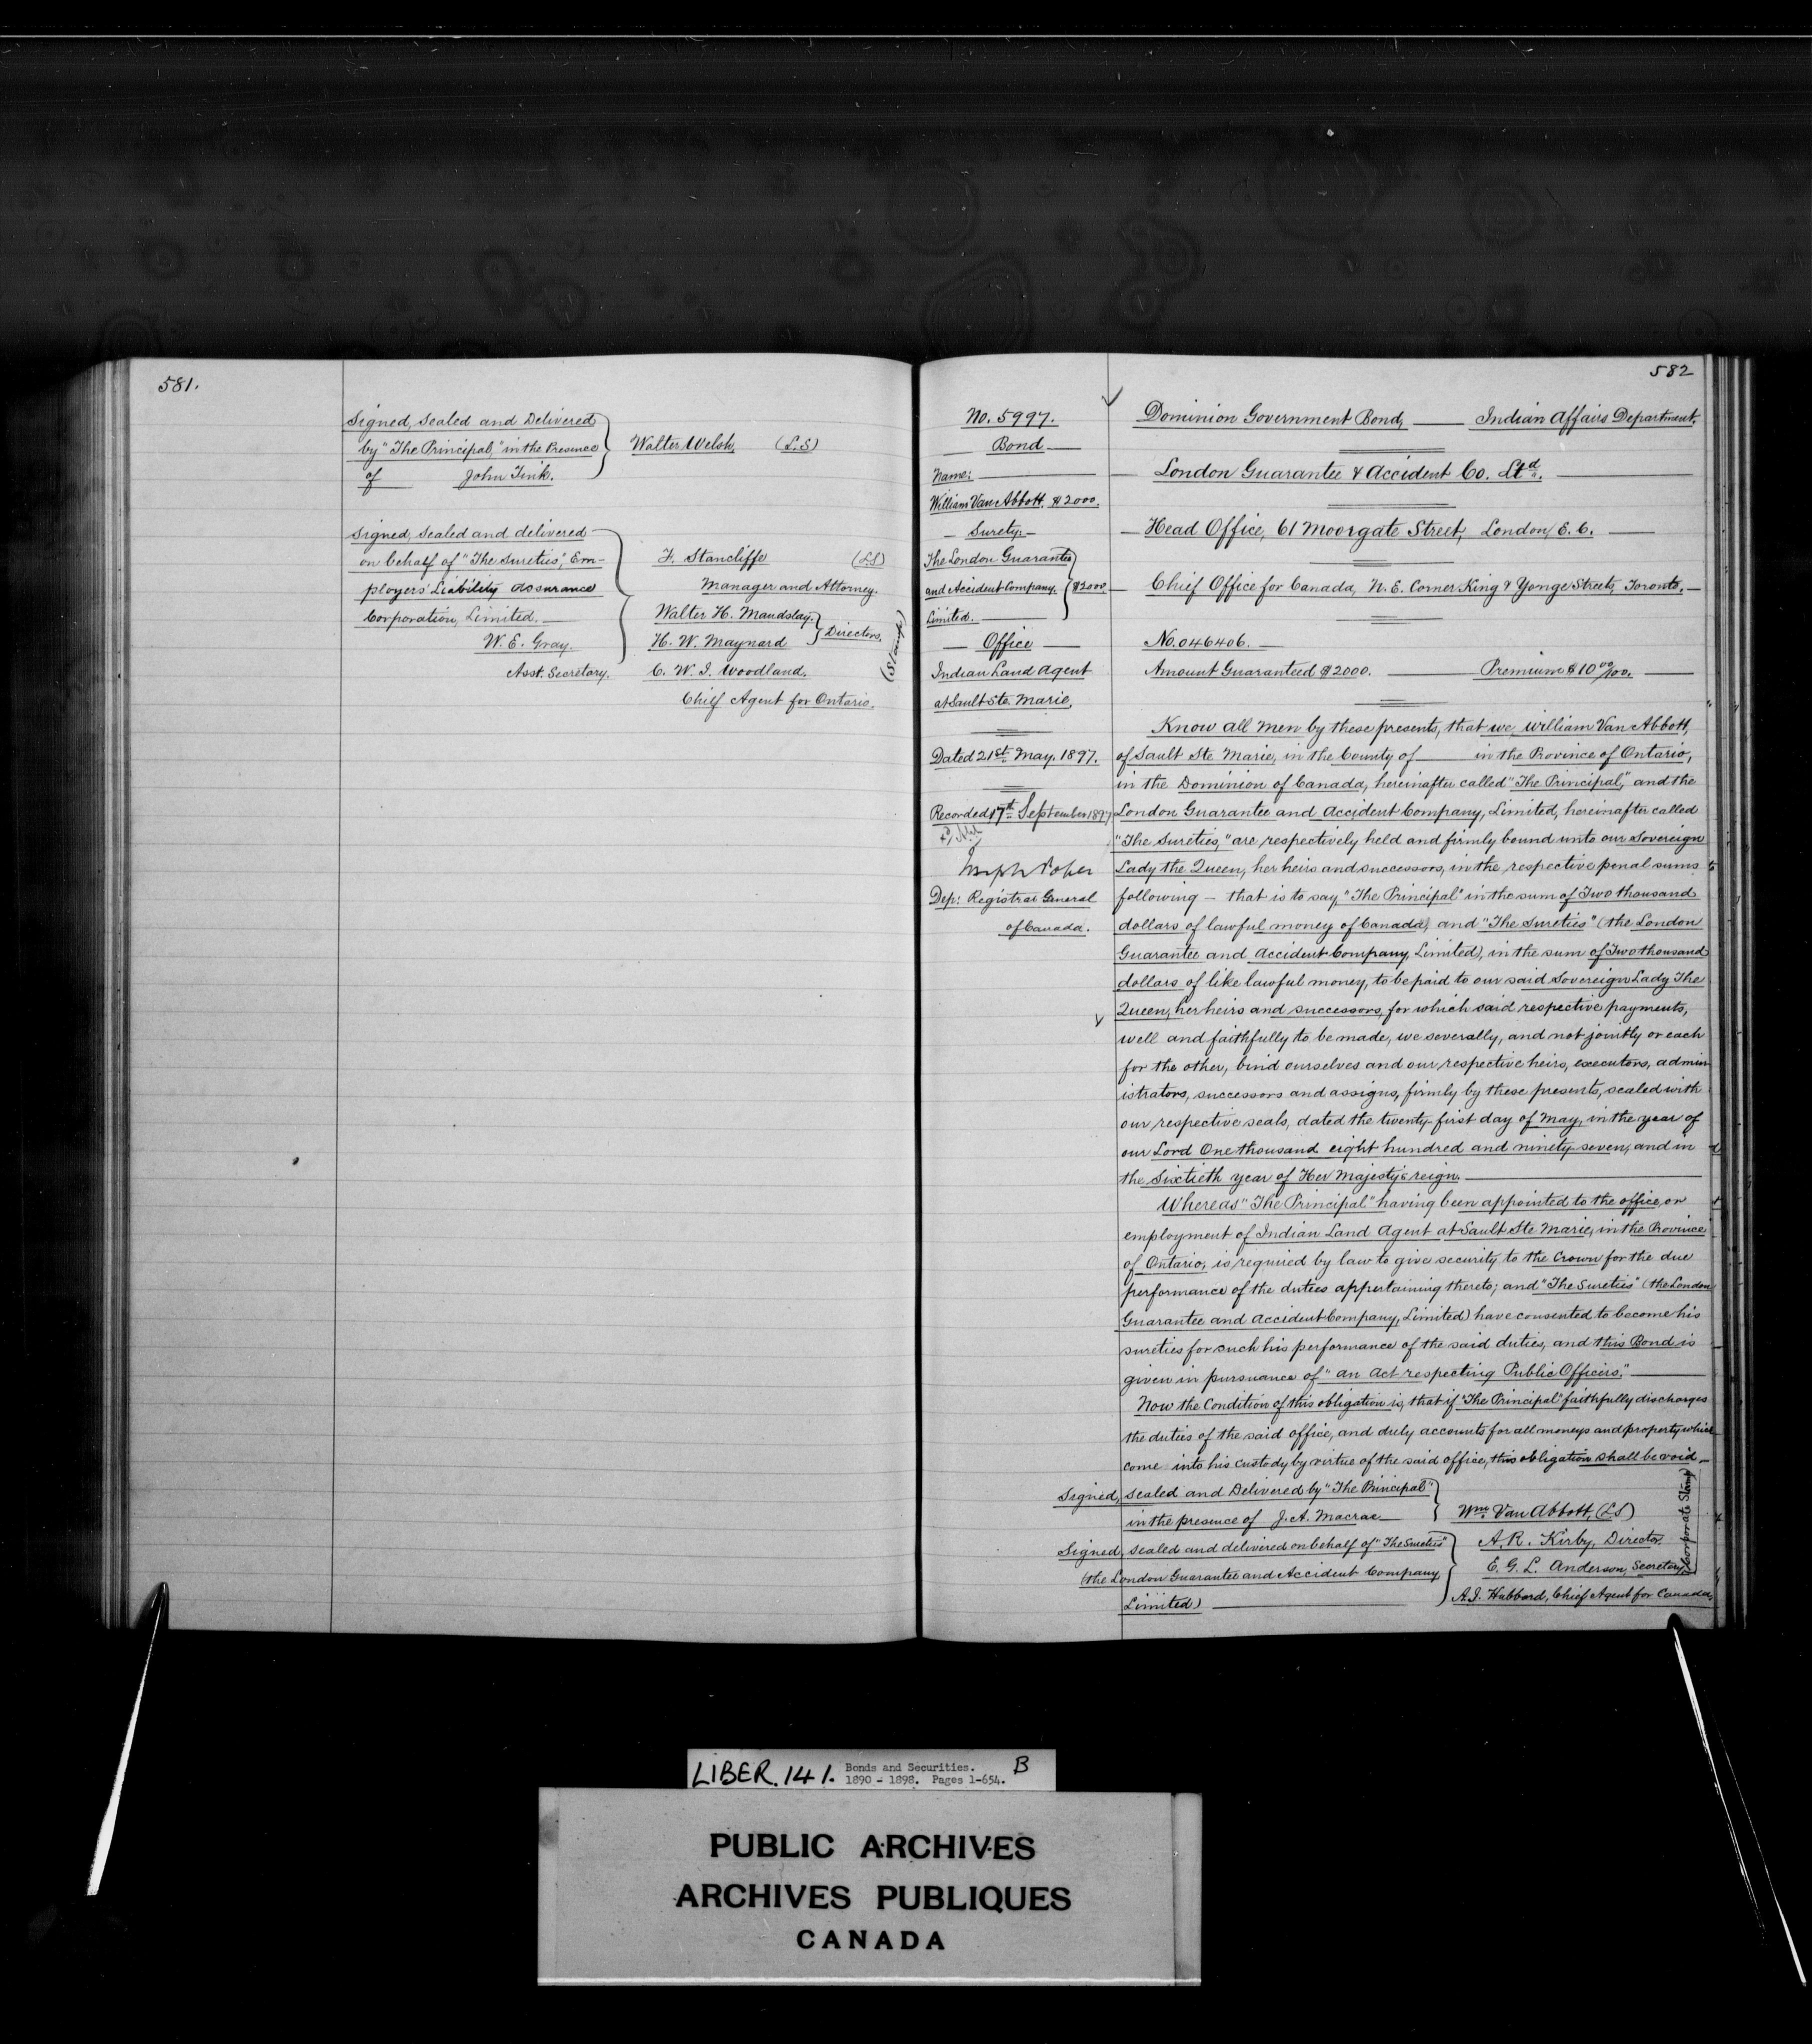 581.
Signed, Sealed and Delivered
by "The Principal," in the Presence
of John Tink.
Walter Welsh, (L.S)
Signed, Sealed and delivered
on behalf of "The Sureties", Em-
ployers' Liability Assurance
Corporation, Limited.
W. E. Gray.
Asst. Secretary.
F. Stancliffe (LS)
Manager and Attorney.
Walter H. Maudslay.
H. W. Maynard
Directors.
C. W. I. Woodland.
Chief Agent for Ontario.
(Stamp)
582
No. 5997.
Bond
Name:
William Van Abbott. $2000.
Surety.
The London Guarantee
and Accident Company.
Limited.
$2000
Office
Indian Land Agent
at Sault Ste. Marie.
Dated 21st May, 1897.
Recorded 17th September 1897
Joseph Pope
Dep: Registrar General
of Canada.
Dominion Government Bond, Indian Affairs Department.
London Guarantee & Accident Co. Ltd.
Head Office, 61 Moorgate Street, London, E. C.
Chief Office for Canada, N. E. Corner King & Yonge Streets, Toronto.
No. 046406.
Amount Guaranteed $2000. Premium $10 00/100.
Know all Men by these presents, that we, William Van Abbott,
of Sault Ste Marie, in the County of in the Province of Ontario,
in the Dominion of Canada, hereinafter called "The Principal," and the
London Guarantee and Accident Company, Limited, hereinafter called
"The Sureties," are respectively held and firmly bound unto our Sovereign
Lady the Queen, her heirs and successors, in the respective penal sums
following - that is to say, "The Principal" in the sum of Two thousand
dollars of lawful money of Canada, and "The Sureties" (the London
Guarantee and Accident Company, Limited), in the sum of Two thousand
dollars of like lawful money, to be paid to our said Sovereign Lady The
Queen, her heirs and successors, for which said respective payments,
well and faithfully to be made, we severally, and not jointly or each
for the other, bind ourselves and our respective heirs, executors, admin
istrators, successors and assigns, firmly by these presents, sealed with
our respective seals, dated the twenty first day of May, in the year of
our Lord One thousand eight hundred and ninety-seven, and in
the Sixtieth year of Her Majesty's reign.
Whereas "The Principal" having been appointed to the office or
employment of Indian Land Agent at Sault Ste Marie, in the Province
of Ontario, is required by law to give security to the Crown for the due
performance of the duties appertaining thereto; and "The Sureties" (the London
Guarantee and Accident Company, Limited) have consented to become his
sureties for such his performance of the said duties, and this Bond is
given in pursuance of "An Act respecting Public Officers."
Now the Condition of this obligation is, that if "The Principal" faithfully discharges
the duties of the said office, and duly accounts for all moneys and property which
come into his custody by virtue of the said office, this obligation shall be void.
Signed, sealed and Delivered by "The Principal"
in the presence of J. A. Macrae
Wm. Van Abbott, (LS)
Signed, sealed and delivered on behalf of "The Sureties"
(the London Guarantee and Accident Company
Limited)
A. R. Kirby, Director.
E. G. L. Anderson, Secretary
A. I. Hubbard, Chief Agent for Canada.
(Corporate Stamp)
LIBER. 141. Bonds and Securities. B
1890 - 1898. Pages 1-654.
PUBLIC ARCHIVES
ARCHIVES PUBLIQUES
CANADA